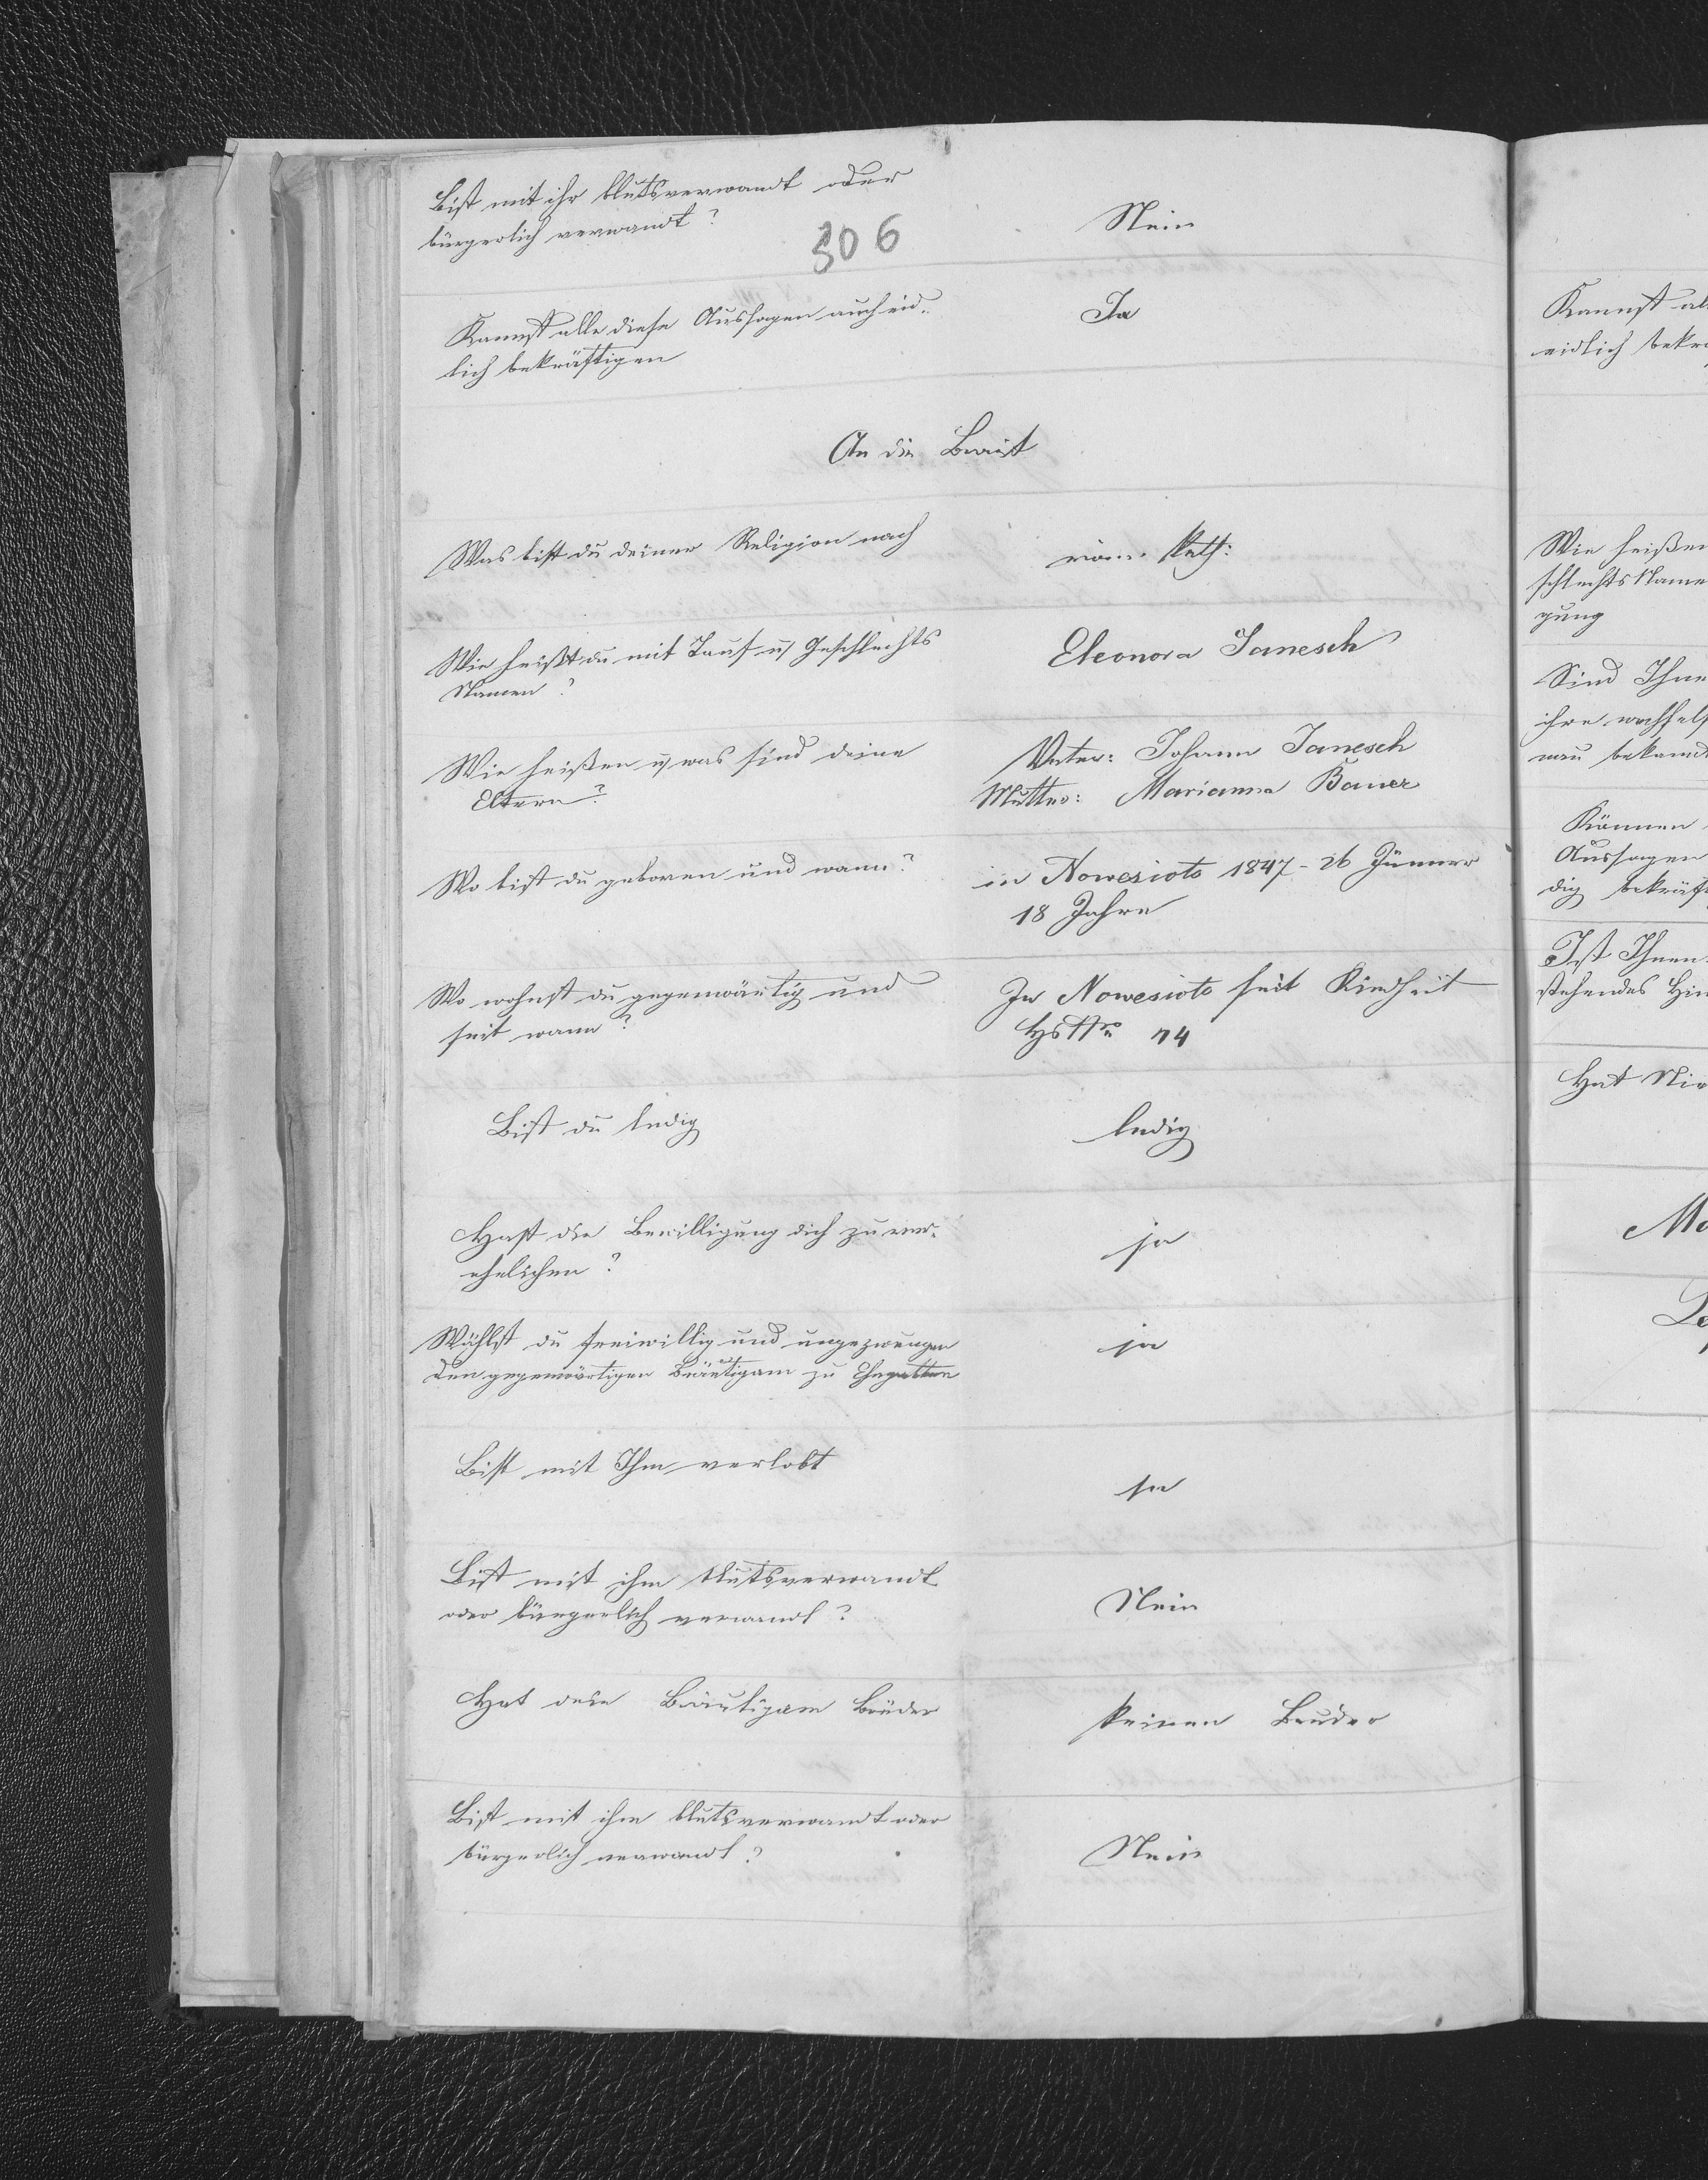 Bist mit ihr blutsverwandt oder
bürgerlich verwandt?
Nein
306
Kannst alle diese Aussagen auch eid-
lich bekräftigen
Ja
An die Braut
Was bist du deiner Religion nach
röm. kath:
Wie heißt du mit Tauf u Geschlechts
Namen?
Eleonora Janesch
Wie heißen u was sind deine
Eltern?
Vater: Johann Janesch
Mutter: Marianna Bauer
Wo bist du geboren und wann?
in Nowesioto 1847 - 26 Jänner
18 Jahre
Wo wohnst du gegenwärtig und
seit wann?
In Nowesioto seit Kindheit
HsNro 74
Bist du ledig
ledig
Hast die Bewilligung dich zu ver-
ehelichen?
ja
Wählst du freiwillig und ungezwungen
den gegenwärtigen Bräutigam zu Ehegatten
ja
Bist mit Ihm verlobt
ja
Bist mit ihm blutsverwandt
oder bürgerlich verwandt?
Nein
Hat dein Bräutigam Brüder
keinen Bruder
Bist mit ihm blutsverwandt oder
bürgerlich verwandt?
Nein
Kannst al
eidlich bekrä
Wie heißen
schlechts Name
gung
Sind Ihne
ihre wechsels
nau bekannt
Können
Aussagen
dig bekräf
Ist Ihnen
stehendes Hin
Hat Nie
Ma